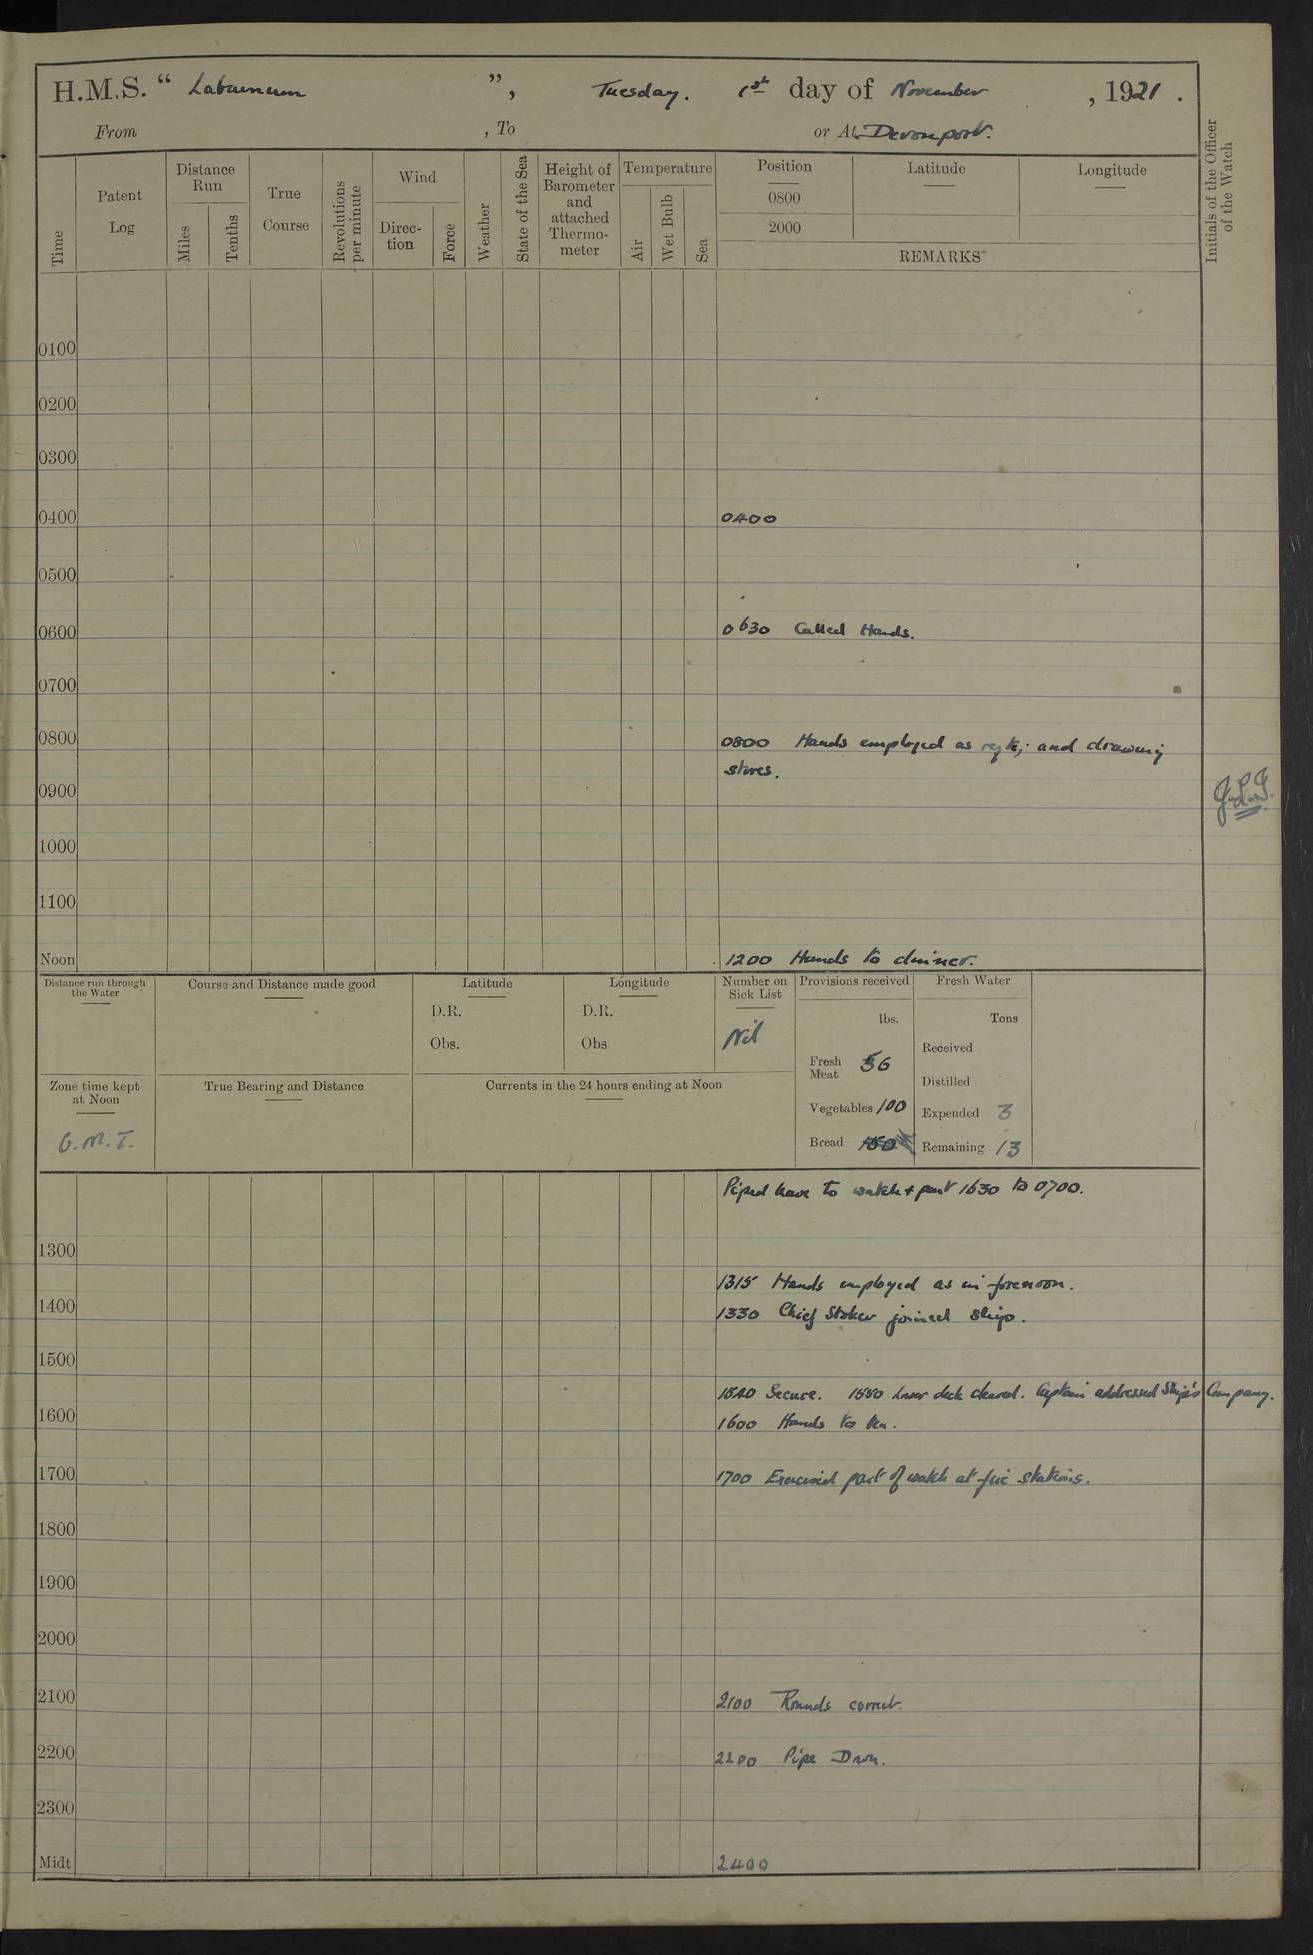 H.M.S. “ Laburnum ”, Tuesday. 1st day of November , 1921 .
From , To or At Devonport.
Time
Patent Log
Distance Run
Miles
Tenths
True Course
Revolutions per minute
Wind
Direc-tion
Force
Weather
State of the Sea
Height of Barometer and attached Thermo-meter
Temperature
Air
Wet Bulb
Sea
Position
Latitude
Longitude
0800
2000
REMARKS
Initials of the Officer of the Watch
0100
0200
0300
0400 0400
0500
0600 0630 Called Hands.
0700
0800 0800 Hands employed as and drawing
stores.
0900
1000
1100
Noon 1200 Hands to dinner.
Distance run through the Water
Course and Distance made good
Latitude
D.R.
Obs.
Longitude
D.R.
Obs
Number on Sick List
Nil
Provisions received
lbs.
Fresh Meat 56
Vegetables 100
Bread
Fresh Water
Tons
Received
Distilled
Expended 3
Remaining 13
Zone time kept at Noon
G.M.T.
True Bearing and Distance
Currents in the 24 hours ending at Noon
Piped leave to watch + part 1630 to 0700.
1300
1315 Hands employed as in forenoon.
1400 1330 Chief Stoker joined ship.
1500
1540 Secure. 1550 Lower deck cleared. Captain addressed Ship's Company.
1600 1600 Hands to tea.
1700 1700 Exercised part of watch at fire stations.
1800
1900
2000
2100 2100 Rounds correct.
2200 2200 Pipe Down.
2300
Midt 2400